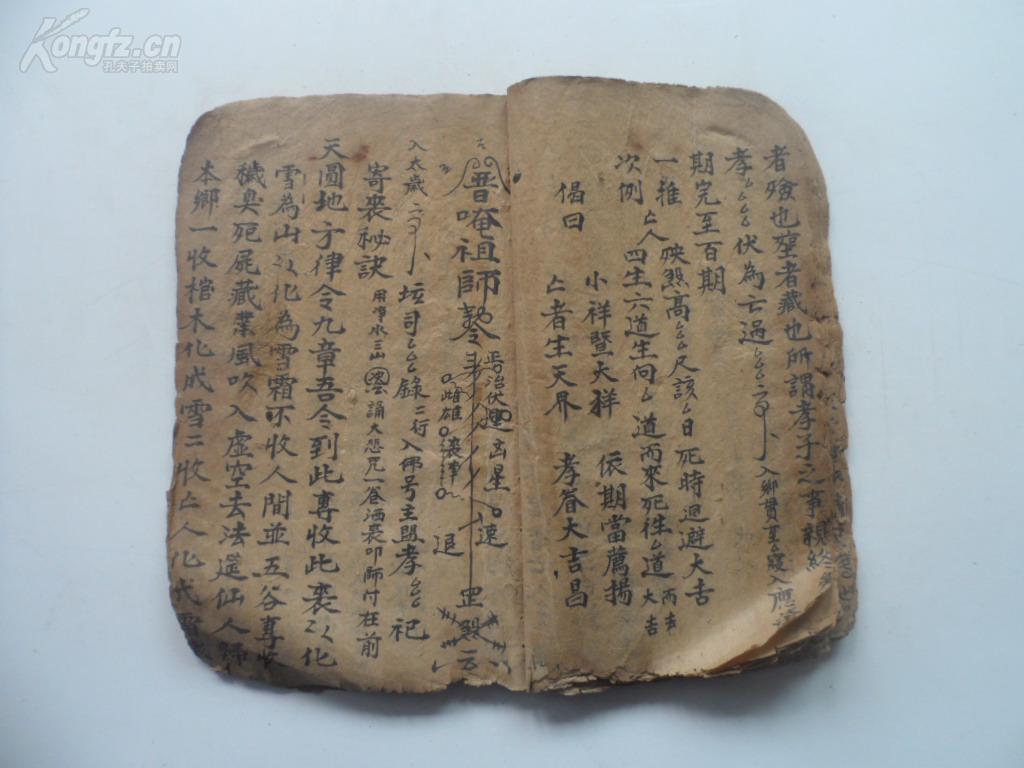 Kongfz.cn
孔夫子拍卖网
者殮也窆者藏也所謂孝子之事親終
孝 伏為亡過 入鄉貫至 入
期完至百期
一推 殃煞高 尺該 日 死時迴避大吉
亡人 四生六道生向 道而來死往 道 大吉
次例 小祥暨大祥 依期當薦揚
偈曰 亡者生天界 孝眷大吉昌
普唵祖師 凶星 速
雌雄 退 罡煞云
入太歲 坛司 錄二行入佛号主盟孝 祀
寄喪秘訣 用净水三山 誦大悲咒一卷洒喪叩師付在前
天圓地方律令九章吾今到此專收此喪以化
雪為山以化為雪霜不收人間並五谷專收
穢臭死屍藏業風吹入虛空去法遣仙人歸
本鄉一收棺木化成雪二收亡人化成